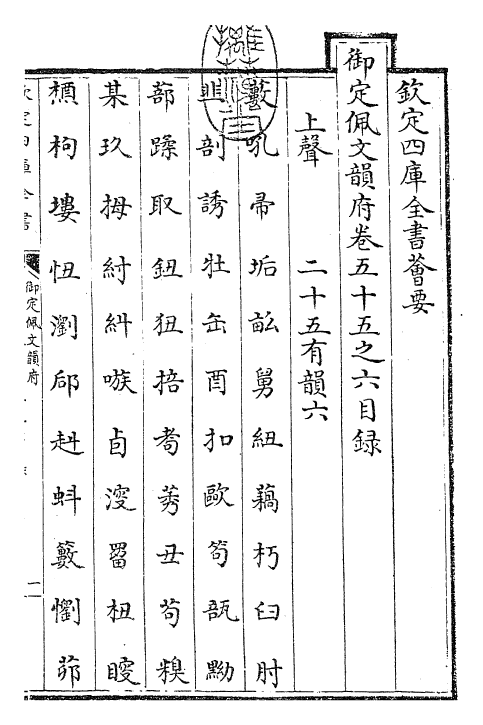 欽定四庫全書薈要
御定佩文韻府卷五十五之六目録
上聲　二十五有韻六
藪吼帚垢畝舅紐藕朽臼肘
剖誘牡缶酉扣歐笱瓿黝
蔀蹂取鈕狃掊耇莠丑苟糗
某玖拇紂糾嗾卣溲罶杻䏂
槱枸塿忸瀏邤赳蚪籔懰茆
欽定四庫全書
御定佩文韻府
一